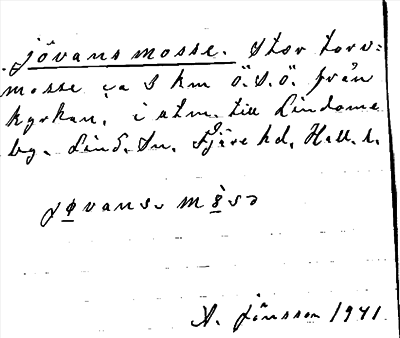 jövans mosse. Stor torv=
mosse ca 5 km ö.s.ö. från
kyrkan, i utm. till Lindome
by. Lind. Sn. Fjäre hd, Hall. l.
jövans- m s
A. Jönsson 1941